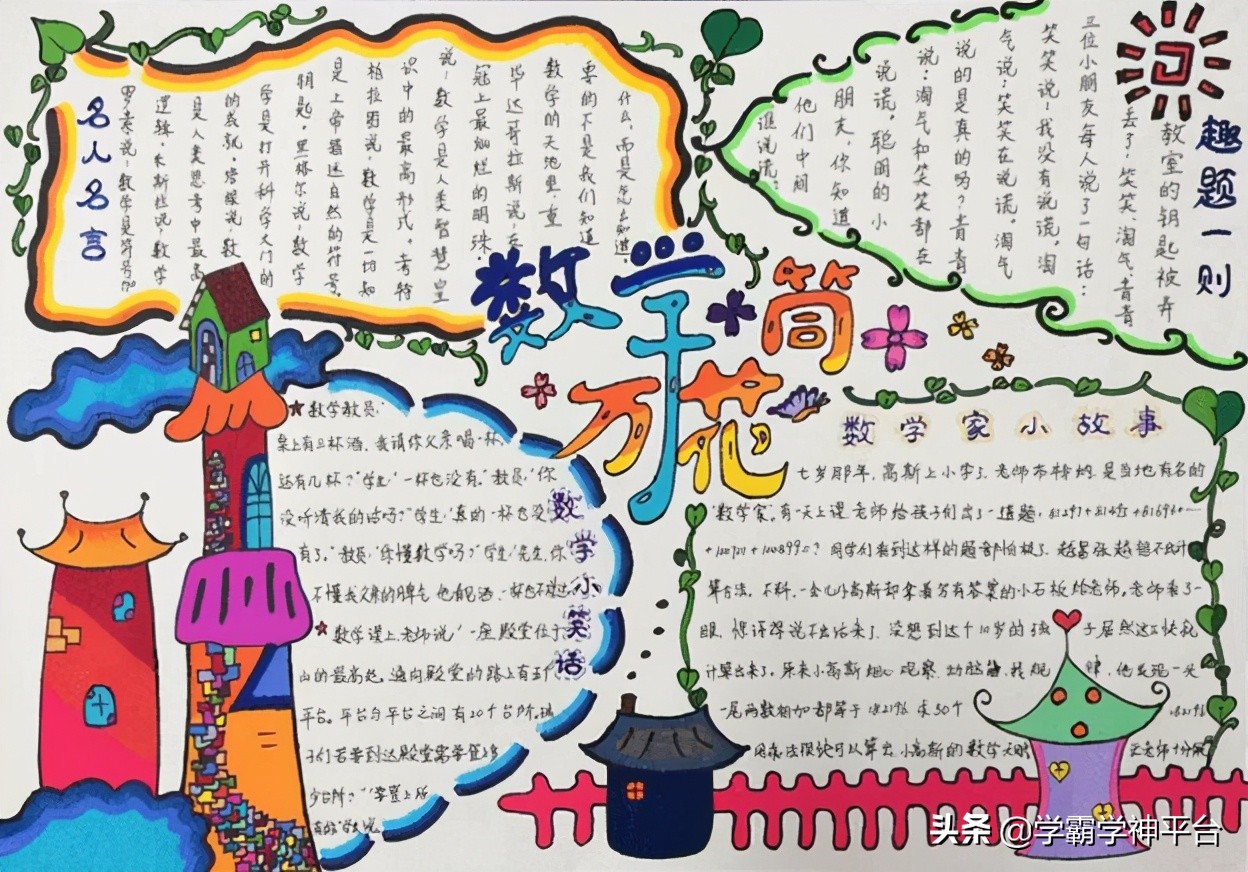 名人名言
罗素说,数学是符号加
逻辑。斯拉说,数学
是人类思考中最高
的成就。培根说,数
学是打开科学大门的
钥匙。黑格尔说,数学
是上帝描述自然的符号。
柏拉图说,数学是一切知
识中的最高形式。考特
说:数学是人类智慧皇
冠上最灿烂的明珠
毕达哥拉斯说,在
数学的天地里,重
要的不是我们知道
什么,而是怎么知道
趣题一则
教室的钥匙被弄
丢了,笑笑、淘气、青青
三位小朋友每人说了一句话:
笑笑说:我没有说谎。淘
气说:笑笑在说谎。淘气
说的是真的吗?青青
说:淘气和笑笑都在
说谎。聪明的小
朋友,你知道
他们中间
谁说谎?
数学万花筒
数学小笑话
★数学教员:
桌上有三杯酒,我请你父亲喝一杯,
还有几杯?"学生:"一杯也没有。"教员:"你
没听清我的话吗?"学生:"真的一杯也没
有了。"教员:"你懂数学吗?"学生:"先生,你
不懂我父亲的脾气,他有酒一杯也不
★数学课上,老师说:"一座殿堂位于
山的最高起,通向殿堂的路上有五个
平台。平台与平台之间有20个台阶。孩
子们若要到达殿堂需要登上多
少台阶?""要登上所
有的
数学家小故事
七岁那年,高斯上小学了,老师布特纳,是当地有名的
"数学家"。有一天上课老师给孩子们出了一道题,81297+81495+81693+…
+100701+100899=?同学们看到这样的题都怕极了,越着急越想不出计
算方法。不料,一会儿小高斯却拿着写有答案的小石板给老师。老师看了一
眼,惊讶得说不出话来了,没想到这个10岁的孩子居然这么快就
计算出来了,原来小高斯细心观察,动脑筋,找规律,他发现一头
一尾两数相加都等于182196,求50个182196
小高斯的数学天 老师十分
头条 @学霸学神平台